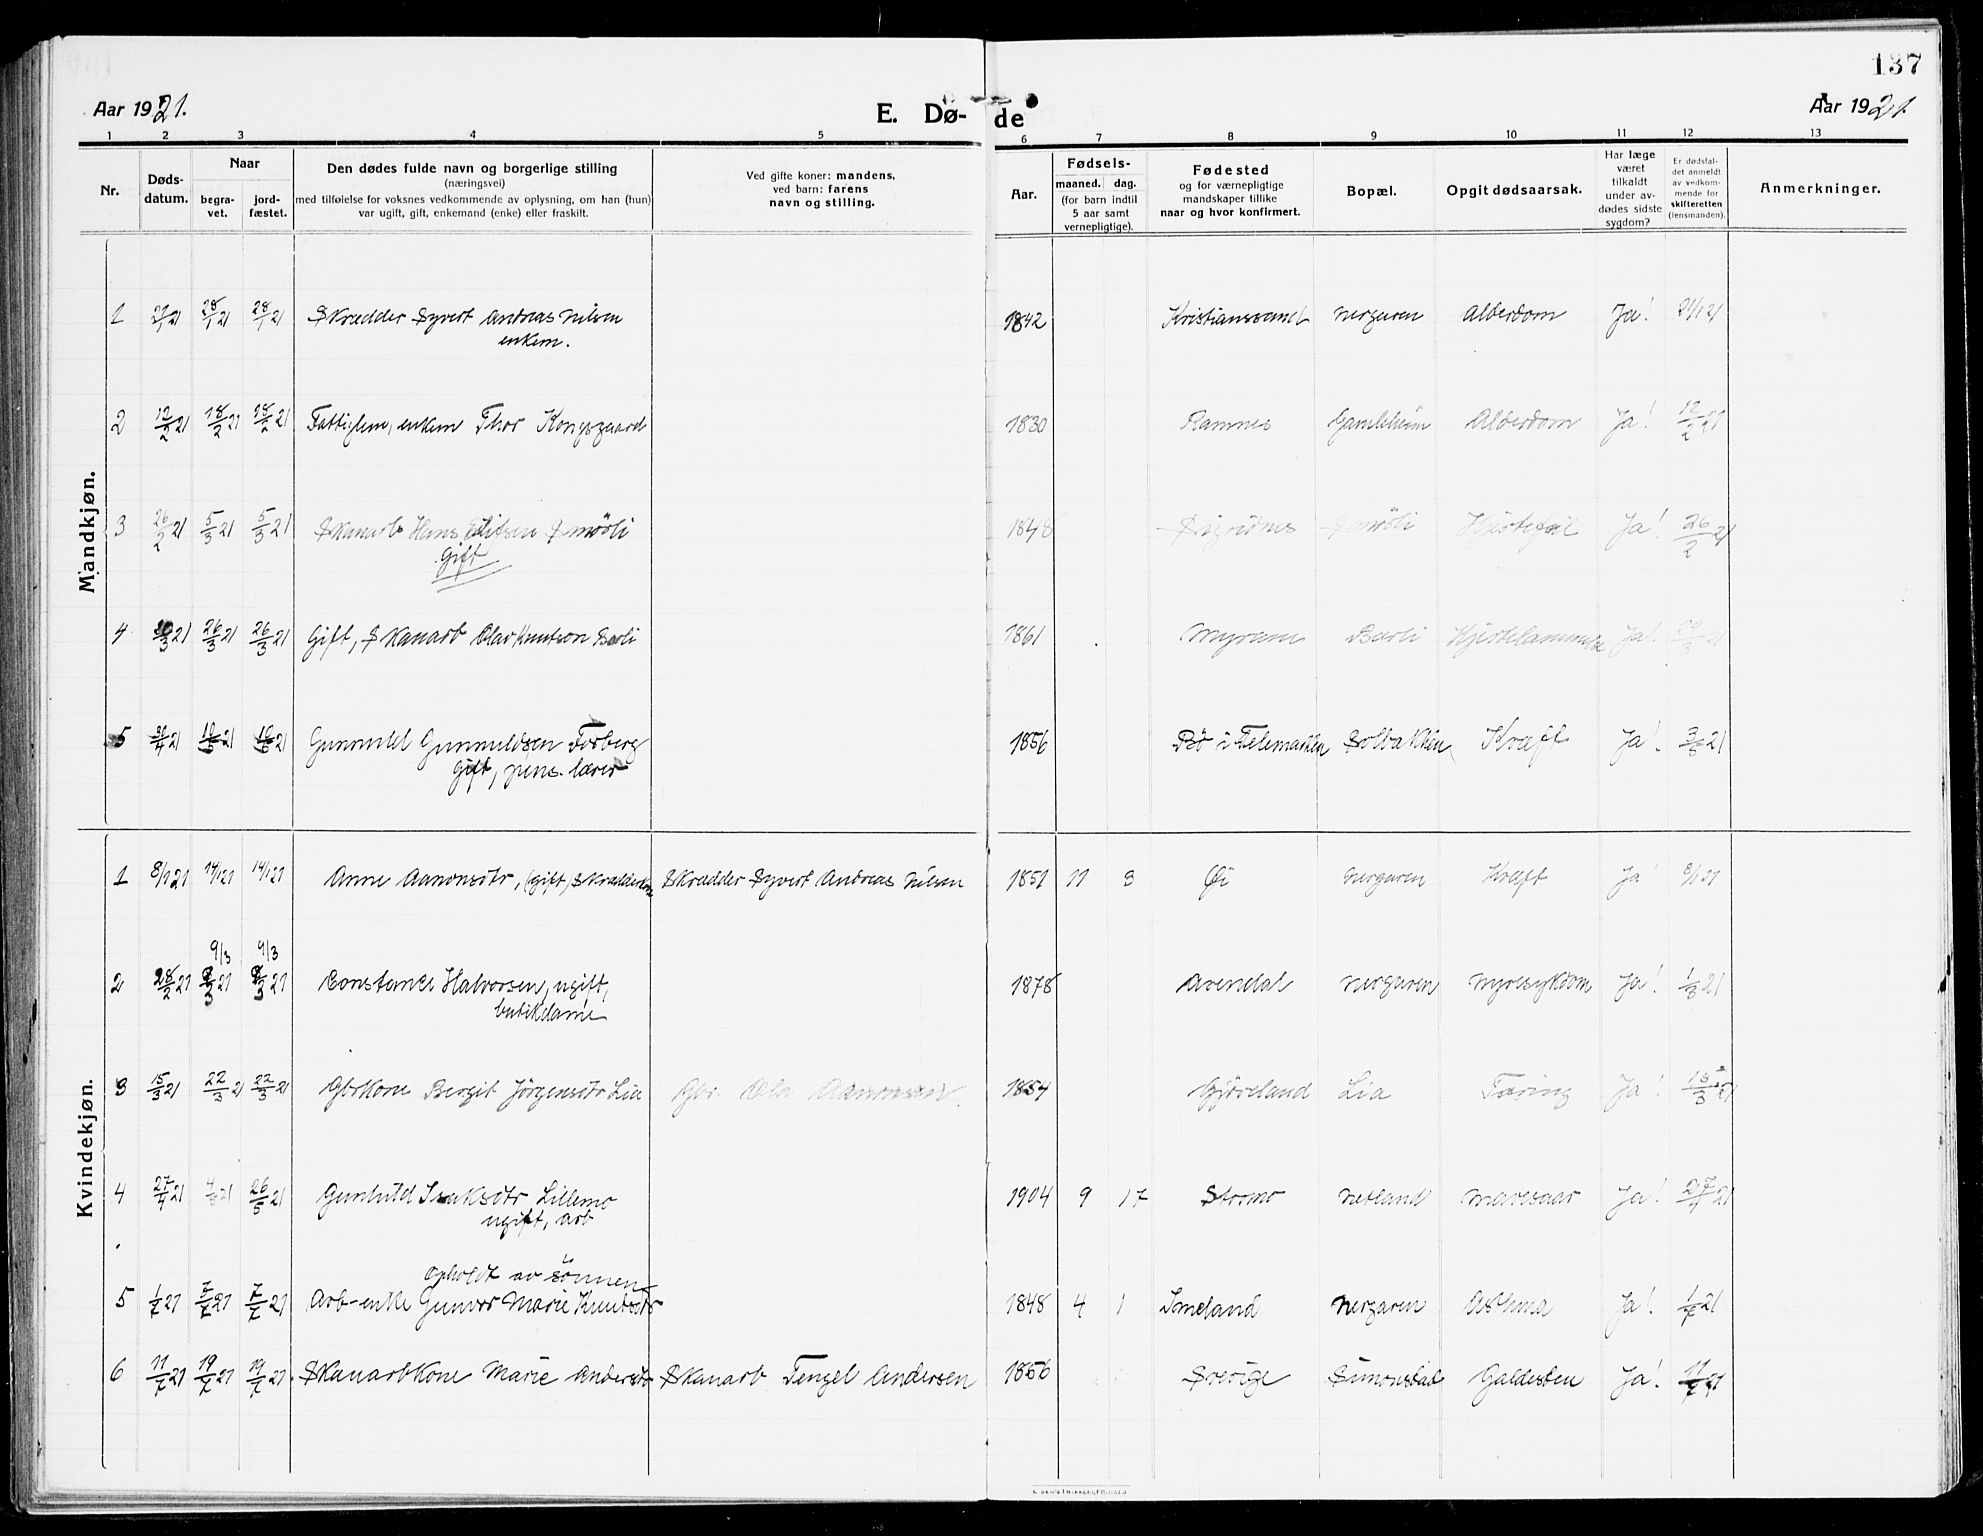 137
Aar 1921. E. Dø- de Aar 1921.
1 2 3 4 5 6 7 8 9 10 11 12 13
Nr. Døds-datum. Naar begra-vet. jord-fæstet. Den dødes fulde navn og borgerlige stilling (næringsvei) med tilføielse for voksnes vedkommende av oplysning, om han (hun) var ugift, gift, enkemand (enke) eller fraskilt. Ved gifte koner: mandens, ved barn: farens navn og stilling. Aar. Fødsels- maaned. dag. (for barn indtil 5 aar samt vernepligtige). Fødested og for værnepligtige mandskaper tillike naar og hvor konfirmert. Bopæl. Opgit dødsaarsak. Har læge været tilkaldt under av-dødes sidste sygdom? Er dødsfal-det anmeldt av vedkom-mende for skifteretten (lensmanden). Anmerkninger.
Mandkjøn.
1 27/1 21 28/1 21 28/1 21 Skrædder Syvert Andreas Nilsen 1842 Kristianssand Nergaren Alderdom Ja! 27/1 21
enkem.
2 12/2 21 18/2 21 18/2 21 Fattiglem, enkem Thor Kongsgaard 1830 Ramnes Gamleheim Alderdom Ja! 12/2 21
3 26/2 21 5/3 21 5/3 21 Skanarb Hans Smöli 1848 Sigridnes Smöli Hjertefeil Ja! 26/2 21
Gift
4 /3 21 26/3 21 26/3 21 Gift, Skanarb Olav Knutson Berli 1861 Myrane Berli Hjertelammelse Ja! /3 21
5 30/4 21 10/5 21 10/5 21 Gunnuld Gunnuldsen Forberg 1856 Bø i Telemarken Solbakken Kræft Ja! 3/5 21
gift, pens. lærer
Kvindekjøn.
1 8/1 21 14/1 21 14/1 21 Anne Aanonsdtr, (gift) Skrædderkone Skrædder Syvert Andreas Nilsen 1851 11 3 Øi Nergaren Kræft Ja 8/1 21
9/3 9/3
2 28/2 21 8/3 21 8/3 21 Constance Halvorsen, ugift, 1878 Arendal Nergaren Nyresykdom Ja! 1/3 21
butikdame
3 15/3 21 22/3 21 22/3 21 Gbrkone Bergit Jörgensdtr Lia Gbr. Ola Aanonsen 1854 Gjöveland Lia Tæring Ja! 15/3 21
4 27/4 21 4/5 21 26/5 21 Gunhild Isaksdtr Lillemo 1904 9 17 Stromo Netland Mavesaar Ja! 27/4 21
ugift, arb
opholdt av sönnen
5 1/7 21 7/7 21 7/7 21 Arb-enke Gunvor Marie Knutsdtr 1848 4 1 Smeland Nergaren Asthma Ja! 1/7 21
6 11/7 21 19/7 21 19/7 21 Skanarbkone Marie Andersdtr Skanarb Tengel Andersen 1856 Sverige Simonstad Galdesten Ja! 11/7 21